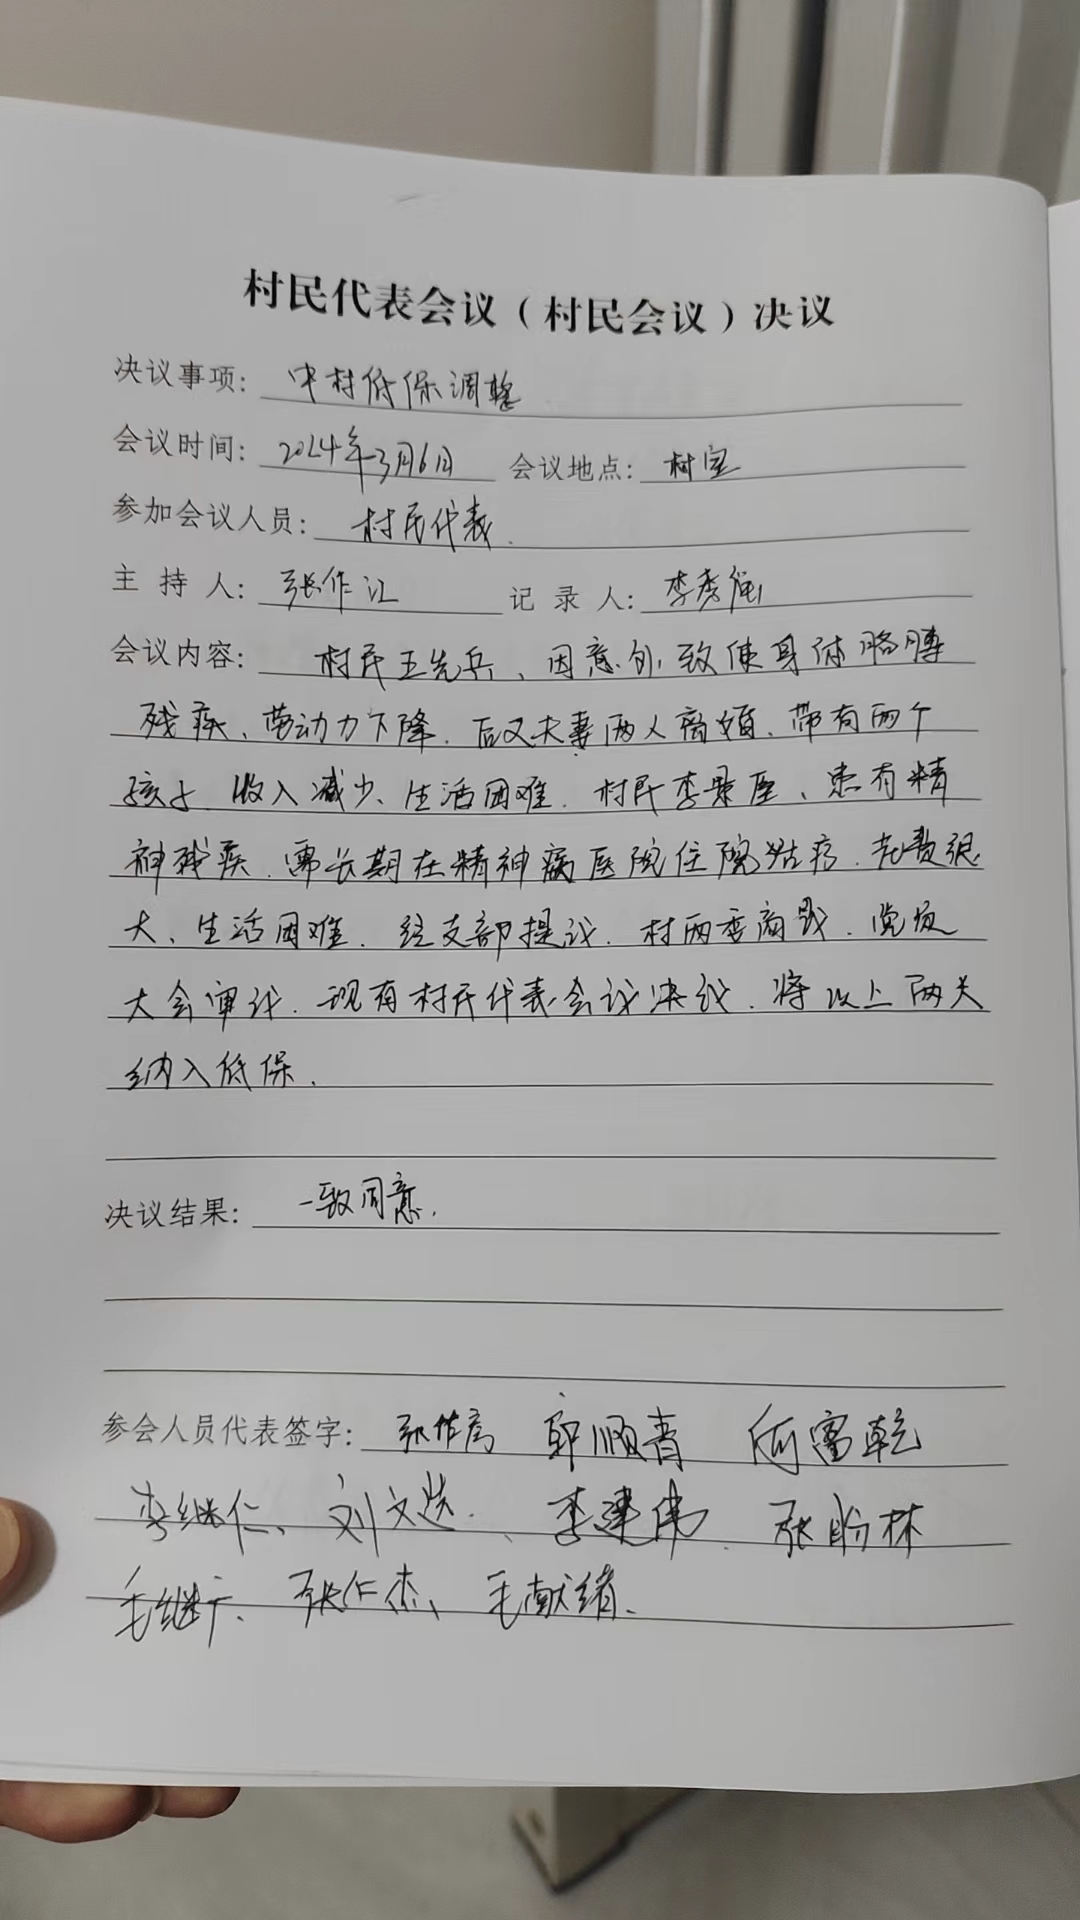 村民代表会议（村民会议）决议
决议事项: 中村低保调整
会议时间: 2024年3月6日 会议地点: 村室
参加会议人员: 村民代表.
主 持 人: 张作江 记 录 人: 李秀
会议内容: 村民王先兵、因意外致使身体胳膊
残疾、劳动力下降.后又夫妻两人离婚、带有两个
孩子.收入减少、生活困难.村民李景、患有精
神残疾.需长期在精神病医院住院治疗.花费很
大、生活困难.经支部提议.村两委商议.党员
大会审议.现有村民代表会议决议.将以上两关
纳入低保.
决议结果: 一致同意.
参会人员代表签字: 张作高 郭顺青 何富乾
李继仁、刘文选.、李建伟.张盼林
毛继广、张仁杰、毛献绪.